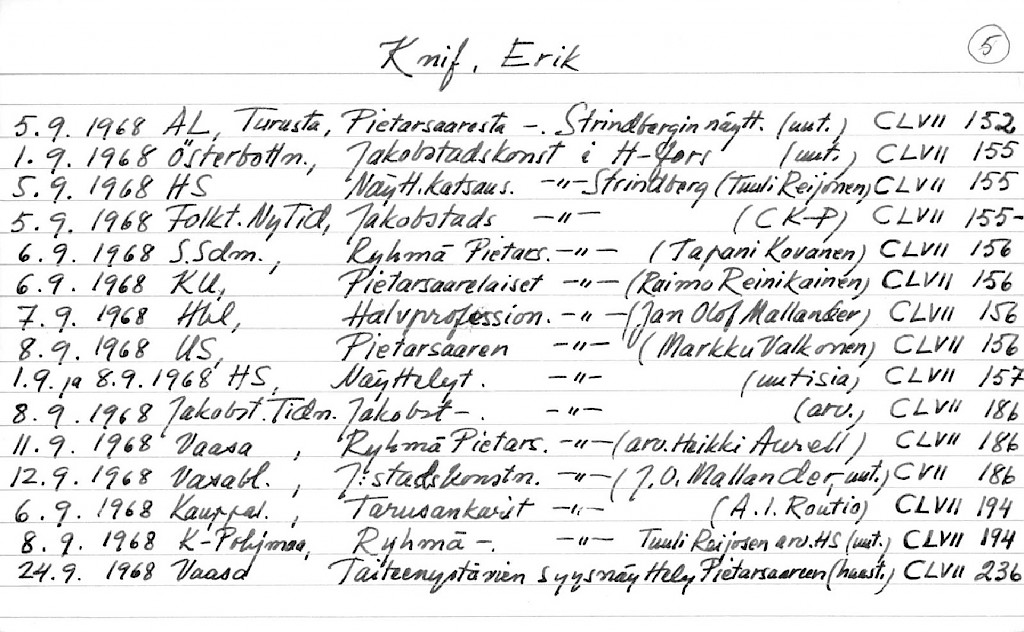 5
Knif, Erik
5.9. 1968 AL, Turusta, Pietarsaaresta -. Strindbergin näytt. (uut.) CLVII 152
1.9. 1968 Österbottn., Jakobstadskonst i H-fors (uut.) CLVII 155
5.9. 1968 HS Näytt.katsaus. -"- Strindberg (Tuuli Reijonen) CLVII 155
5.9. 1968 Folkt. Ny Tid, Jakobstads -"- (CK-P) CLVII 155-
6.9. 1968 S.Sdm., Ryhmä Pietars. -"- (Tapani Kovanen) CLVII 156
6.9. 1968 KU, Pietarsaarelaiset -"- (Raimo Reinikainen) CLVII 156
7.9. 1968 Hbl, Halvprofession. -"- (Jan Olof Mallander) CLVII 156
8.9. 1968 US, Pietarsaaren -"- (Markku Valkonen) CLVII 156
1.9. ja 8.9. 1968 HS, Näyttelyt. -"- (uutisia) CLVII 157
8.9. 1968 Jakobst. Tidn. Jakobst-. -"- (arv.) CLVII 186
11.9. 1968 Vaasa, Ryhmä Pietars. -"- (arv. Heikki Aurell) CLVII 186
12.9. 1968 Vasabl., J:stadskonstn. -"- (J.O. Mallander, uut.) CVII 186
6.9. 1968 Kauppal., Tarusankarit -"- (A.I. Routio) CLVII 194
8.9. 1968 K-Pohjmaa, Ryhmä -. -"- Tuuli Reijosen arv. HS (uut.) CLVII 194
24.9. 1968 Vaasa Taiteenystävien syysnäyttely Pietarsaareen (haast.) CLVII 236